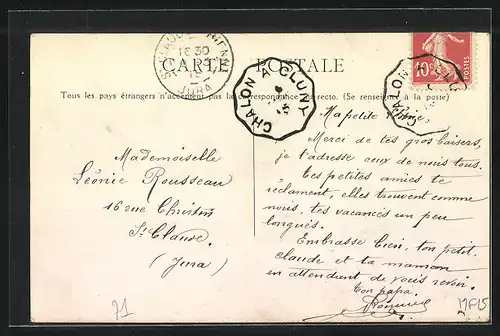 CARTE POSTALE
Tous les pays étrangers n'acceptent pas la correspondance au recto. (Se renseigner à la poste)
16 30
JURA
CHALON A CLUNY
15
10c
POSTES
CHALON
Ma petite
Merci de tes gros baisers,
je t'adresse ceux de nous tous.
Tes petites amies te
réclament, elles trouvent comme
nous, tes vacances un peu
longues.
Embrasse bien, ton petit
claude et ta maman
en attendant de vous revoir.
Ton papa.
Mademoiselle
Léonie Rousseau
16 rue
St Claude.
(Jura)
71
MF15